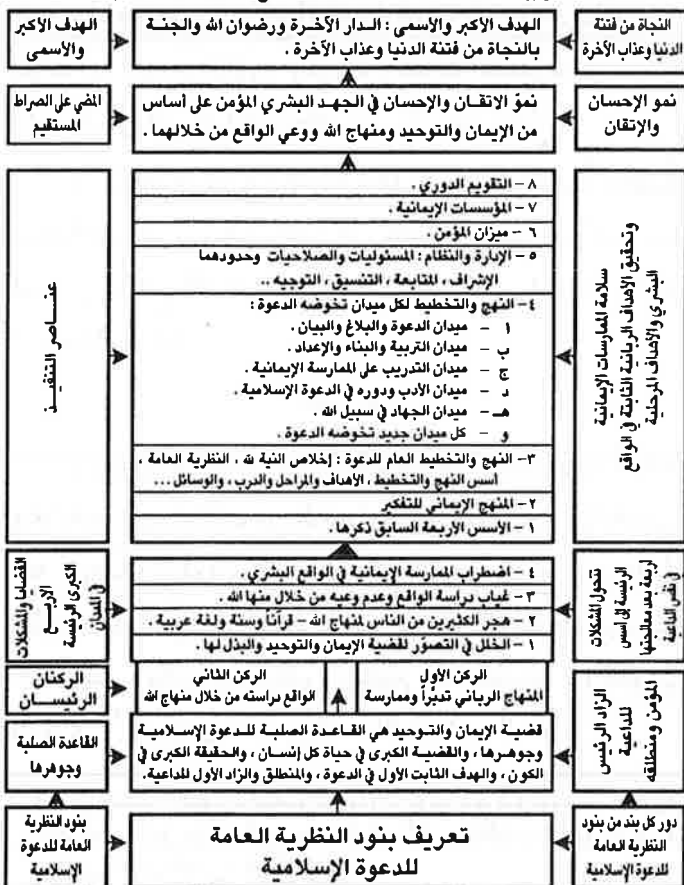 النجاة من فتنة
الدنيا وعذاب الآخرة
الهدف الأكبر والأسمى : الدار الآخرة ورضوان الله والجنة
بالنجاة من فتنة الدنيا وعذاب الآخرة .
الهدف الأكبر
والأسمى
نمو الإحسان
والإتقان
نموّ الاتقان والإحسان في الجهد البشري المؤمن على أساس
من الإيمان والتوحيد ومنهاج الله ووعي الواقع من خلالهما .
المضي على الصراط
المستقيم
سلامة الممارسات الإيمانية
وتحقيق الأهداف الربانية الثابتة في الواقع
البشري والأهداف المرحلية
٨ – التقويم الدوري .
٧ – المؤسسات الإيمانية .
٦ – ميزان المؤمن .
٥ – الإدارة والنظام : المسئوليات والصلاحيات وحدودهما
الإشراف ، المتابعة ، التنسيق ، التوجيه ..
٤– النهج والتخطيط لكل ميدان تخوضه الدعوة :
أ – ميدان الدعوة والبلاغ والبيان .
ب – ميدان التربية والبناء والإعداد .
ج – ميدان التدريب على الممارسة الإيمانية .
د – ميدان الأدب ودوره في الدعوة الإسلامية .
هـ – ميدان الجهاد في سبيل الله .
و – كل ميدان جديد تخوضه الدعوة .
٣– النهج والتخطيط العام للدعوة : إخلاص النية لله ، النظرية العامة ،
أسس النهج والتخطيط ، الأهداف والمراحل والدرب ، والوسائل ...
٢– المنهج الإيماني للتفكير
١ – الأسس الأربعة السابق ذكرها .
عناصر التنفيذ
تتحول المشكلات
الرئيسة إلى أسس
أربعة بعد معالجتها
في نفس الداعية
٤ – اضطراب الممارسة الإيمانية في الواقع البشري .
٣ – غياب دراسة الواقع وعدم وعيه من خلال منهاج الله .
٢ – هجر الكثيرين من الناس لمنهاج الله – قرآناً وسنة ولغة عربية .
١ – الخلل في التصوّر لقضية الإيمان والتوحيد والبذل لها .
القضايا والمشكلات
الكبرى الرئيسة
الأربع
في الميدان
الركن الأول
المنهاج الرباني تدبّراً وممارسة
الركن الثاني
الواقع دراسته من خلال منهاج الله
الركنان
الرئيسان
الزاد الرئيس
للداعية
المؤمن ومنطلقه
قضية الإيمان والتوحيد هي القاعدة الصلبة للدعوة الإسلامية
وجوهرها ، والقضية الكبرى في حياة كل إنسان ، والحقيقة الكبرى في
الكون ، والهدف الثابت الأول في الدعوة ، والمنطلق والزاد الأول للداعية.
القاعدة الصلبة
وجوهرها
دور كل بند من بنود
النظرية العامة
للدعوة الإسلامية
تعريف بنود النظرية العامة
للدعوة الإسلامية
بنود النظرية
العامة للدعوة
الإسلامية